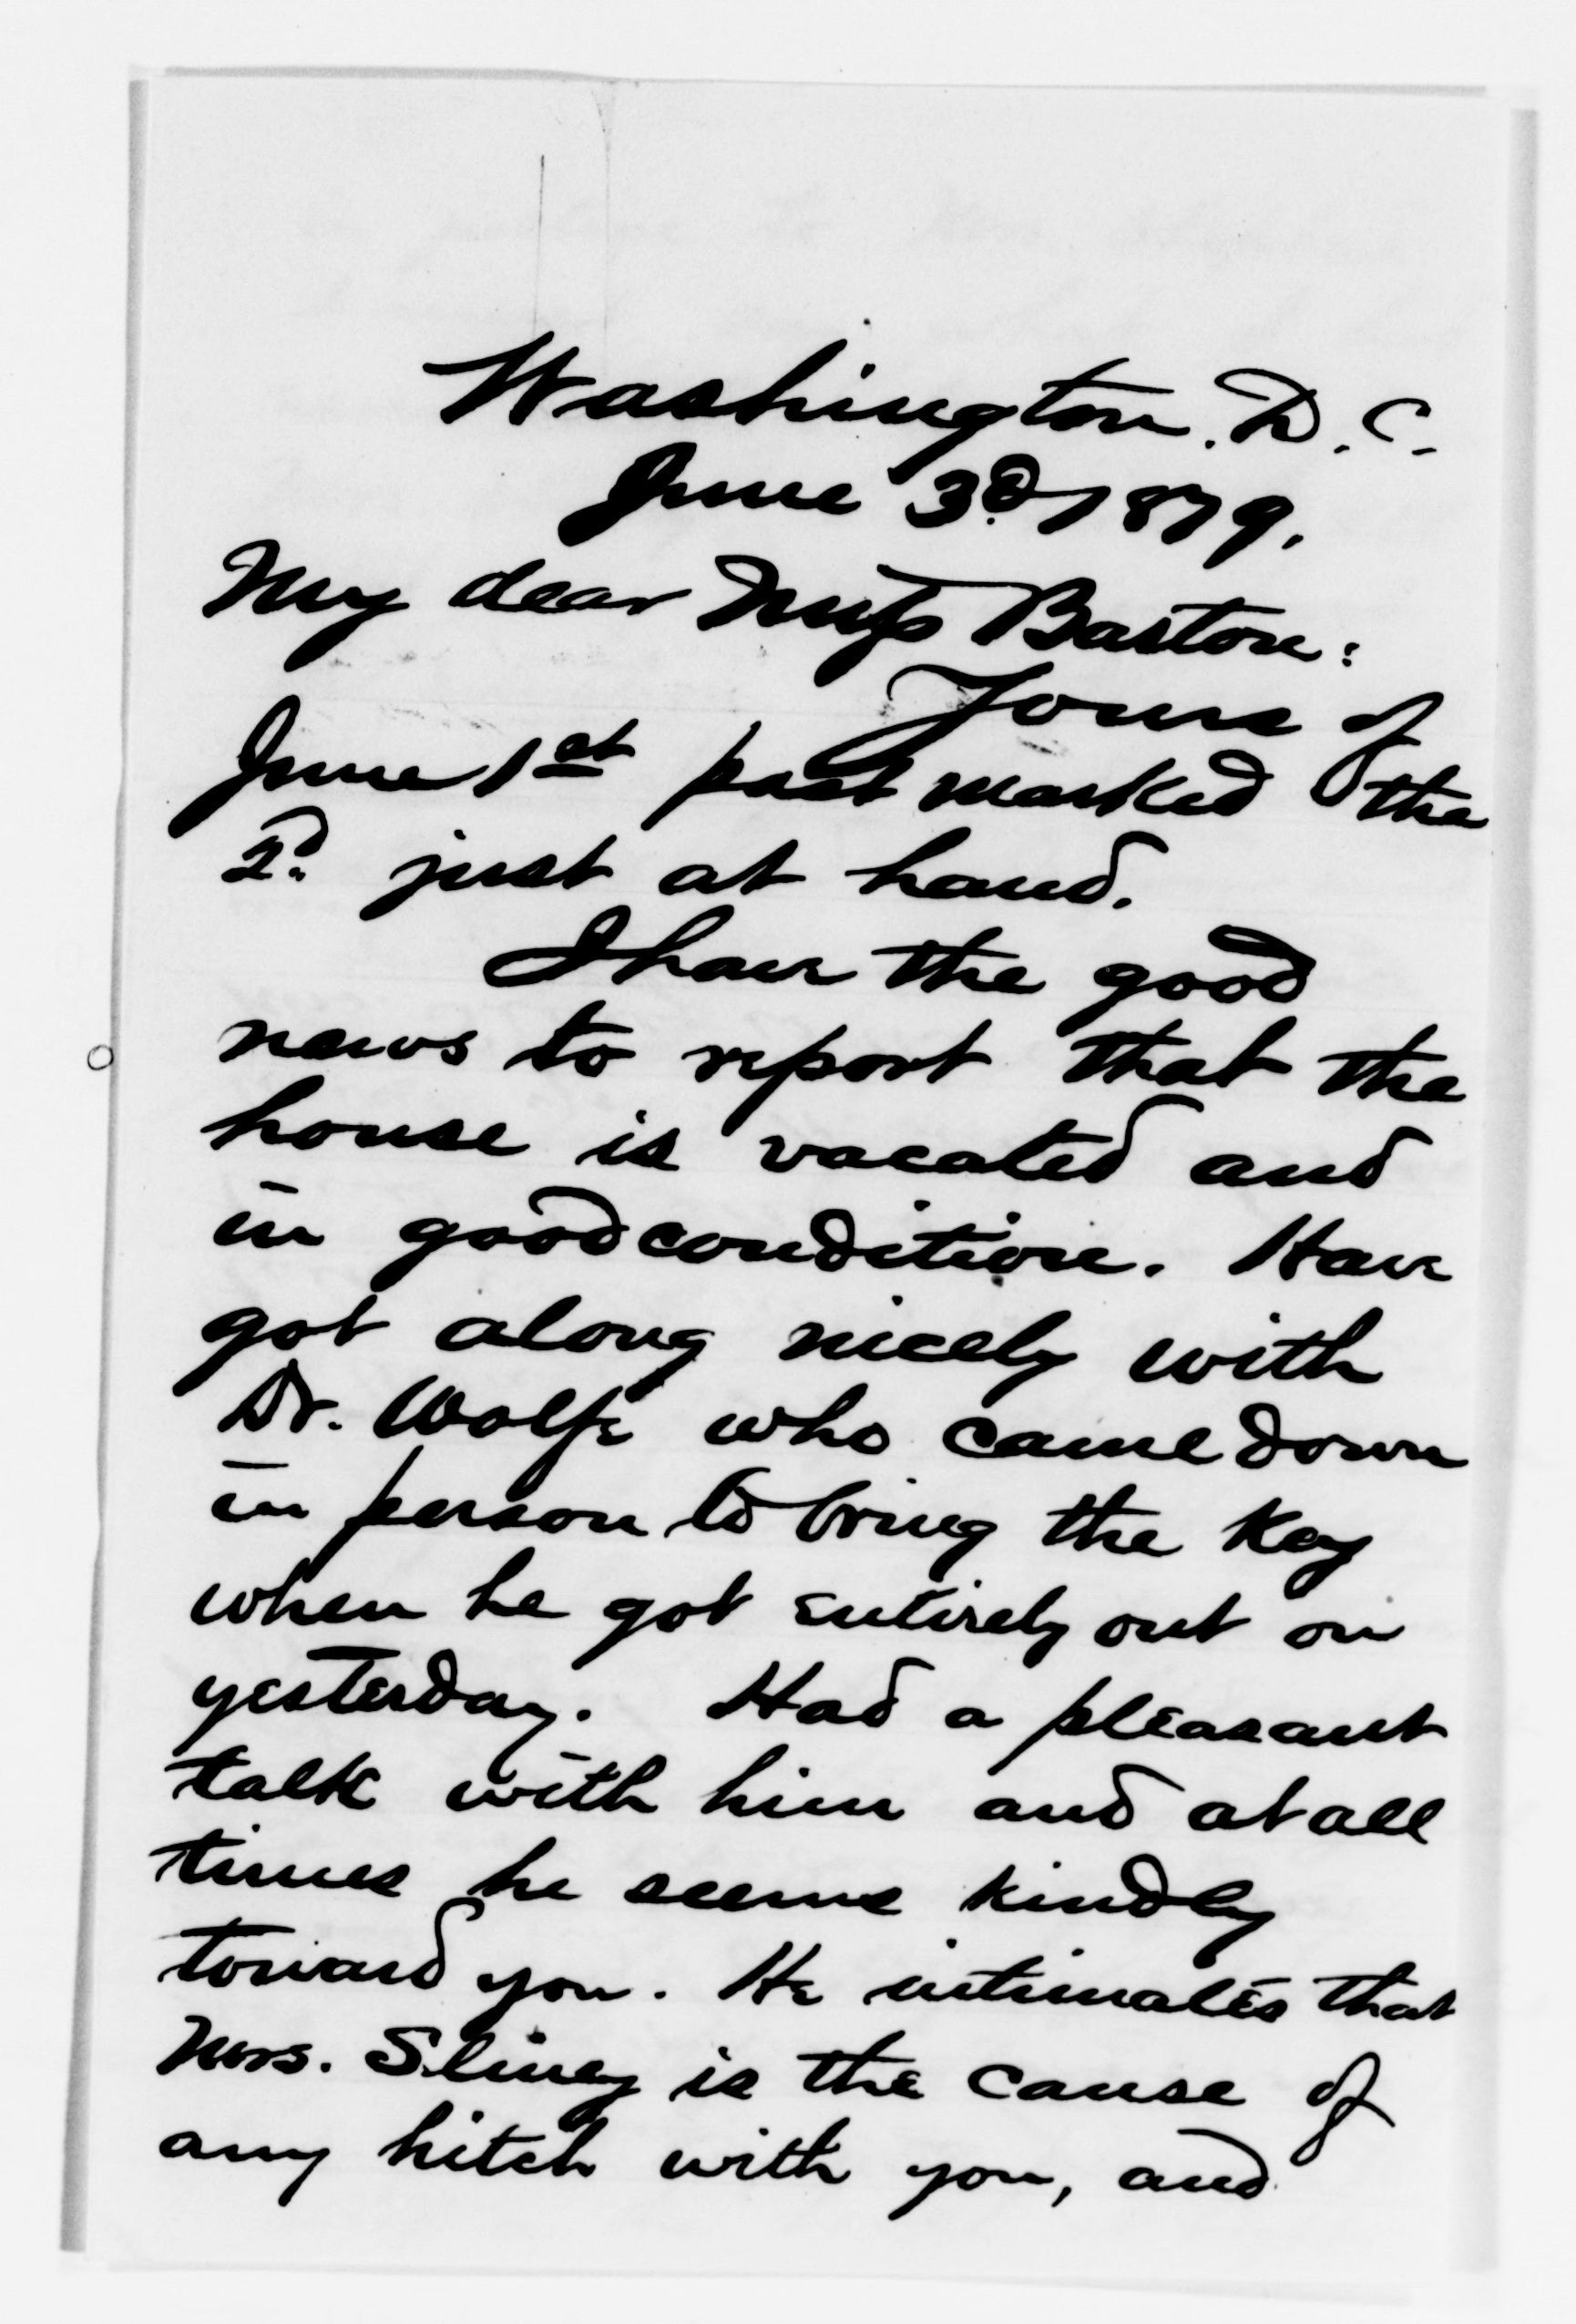 Washington. D. C.
June 3d. 1879.
My dear Miss Barton:
Yours of
June 1st post marked the
2d. just at hand.
I have the good
news to report that the
house is vacated and
in good condition. Have
got along nicely with
Dr. Wolfe who came down
in person to bring the key
when he got entirely out on
yesterday. Had a pleasant
talk with him and at all
times he seems kindly
toward you. He intimates that
Mrs. Sliney is the cause of
any hitch with you, and